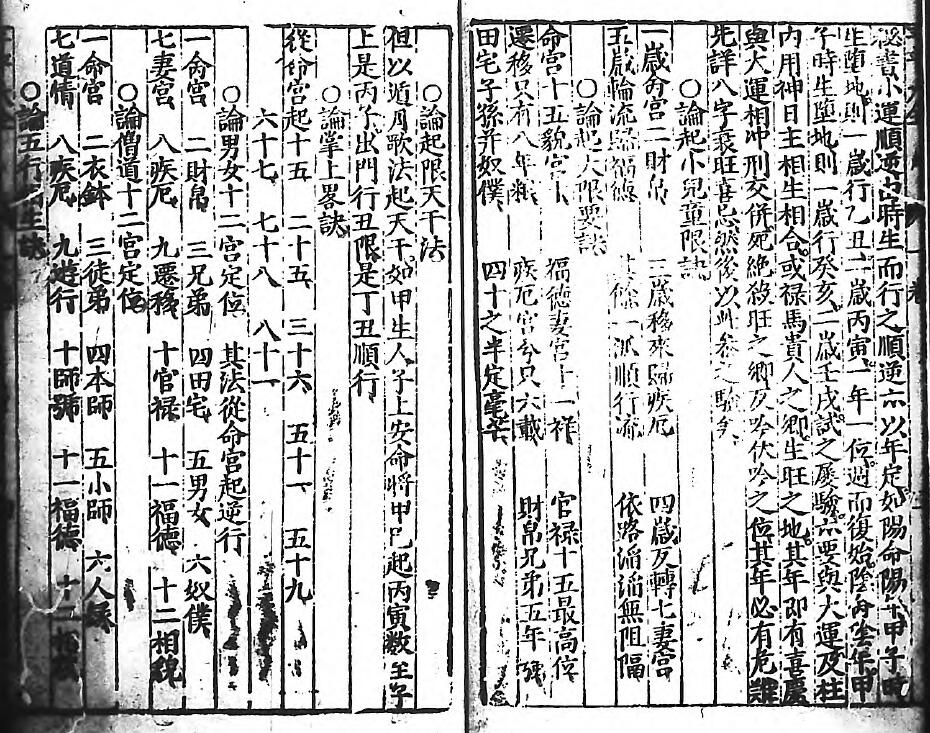 秘書小運順逆占時生而行之順逆亦以年定如陽命陽年甲子時
生墮地則一歲行乙丑二歲丙寅一年一位週而復始陰命陰年甲
子時生墮地則一歲行癸亥二歲壬戌試之屡驗亦要與大運及柱
内用神日主相生相合或禄馬貴人之卿生旺之地其年即有喜慶
與大運相冲刑交併死絶殺旺之卿反吟伏吟之位其年必有危難
先詳八字衰旺喜忌然後以此參之驗矣
○論起小兒童限訣
一歲命宫二財帛 三歲移來歸疾厄 四歲反轉七妻宫
五歲輪流歸福德 其餘一派順行流 依路滔滔無阻隔
○論起大限要訣
命宫十五貌宫十 福德妻宫十一祥 官禄十五最高位
遷移只有八年粮 疾厄宫兮只六載 財帛兄弟五年强
田宅子孫并奴僕 四十之半定毫芒
○論起限天干法
但以遁月歌法起天干如甲生人子上安命將甲己起丙寅数至子
上是丙子出門行丑限是丁丑順行
○論掌上畧訣
從命宫起十五 二十五 三十六 五十一 五十九
六十七 七十八 八十一
○論男女十二宫定位 其法從命宫起逆行
一命宫 二財帛 三兄弟 四田宅 五男女 六奴僕
七妻宫 八疾厄 九遷移 十官禄 十一福德 十二相貌
○論僧道十二宫定位
一命宫 二衣鉢 三徒弟 四本師 五小師 六人
七道情 八疾厄 九遊行 十師號 十一福德 十二
○論五行 生訣